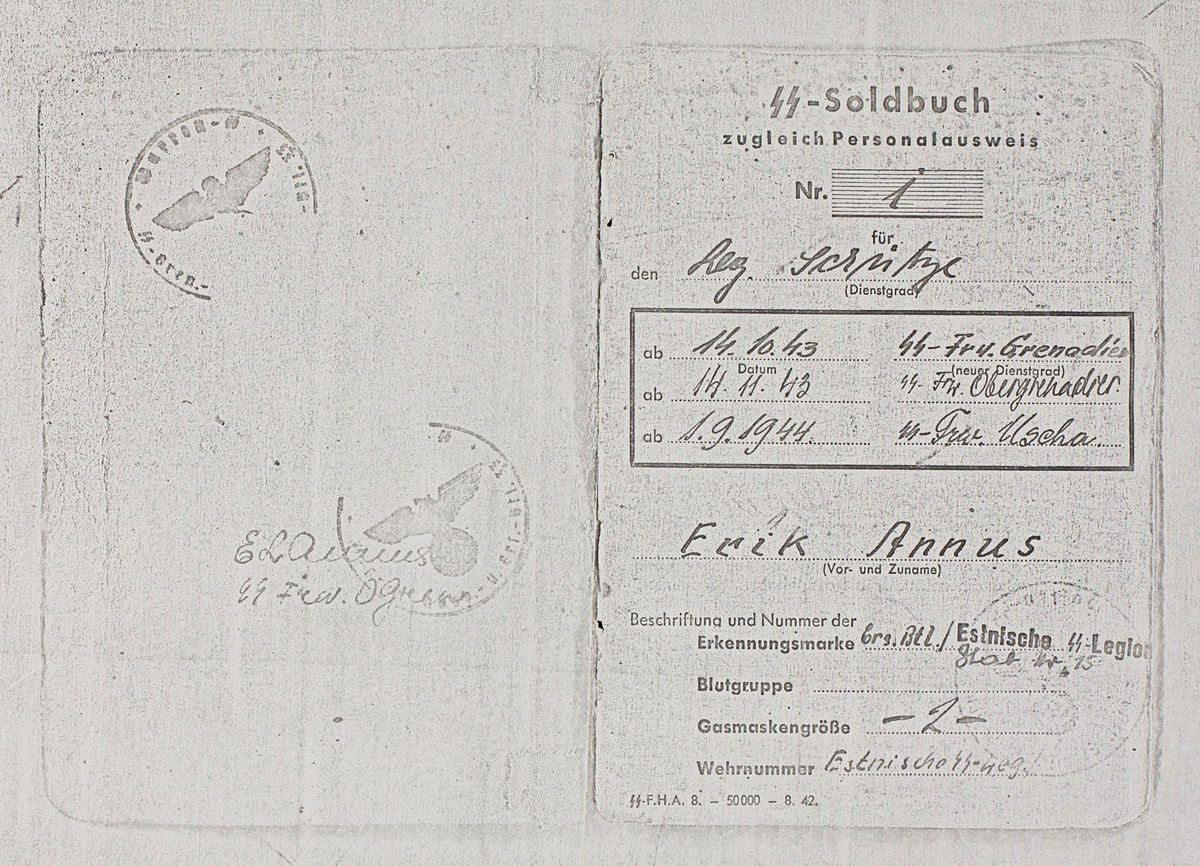 Waffen-ᛋᛋ
ᛋᛋ-Gren.-
ᛋᛋ Frw. OGren.
ᛋᛋ-Soldbuch
zugleich Personalausweis
Nr. 1
für
den Leg. Schütze
(Dienstgrad)
ab 14. 10. 43 ᛋᛋ-Frw. Grenadier
Datum (neuer Dienstgrad)
ab 14. 11. 43 ᛋᛋ-Frw. Obergrenadier.
ab 1. 9. 1944. ᛋᛋ-Frw. Uscha.
Erik Annus
(Vor- und Zuname)
Beschriftung und Nummer der
Erkennungsmarke Ers. Btl./Estnische ᛋᛋ-Legion
Nr. 15
Blutgruppe
Gasmaskengröße -2-
Wehrnummer Estnische ᛋᛋ-Leg.
ᛋᛋ-F.H.A. 8. – 50000 – 8. 42.